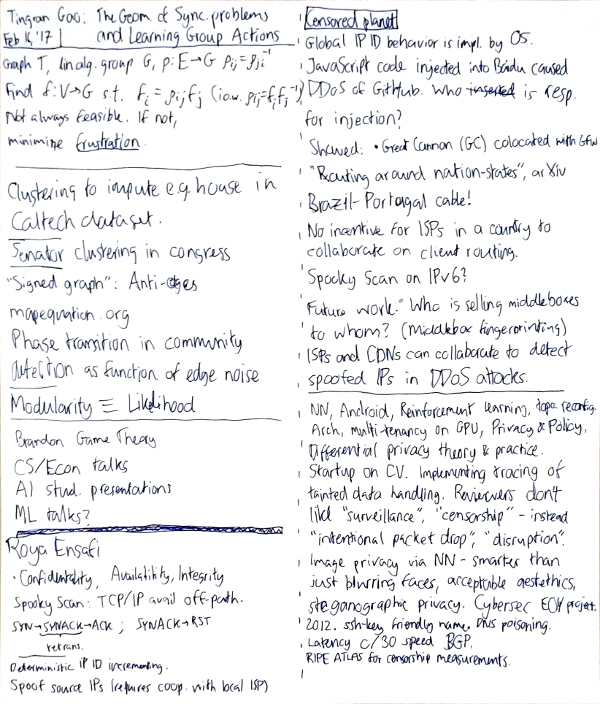 Tingran Gao: The Geom of Sync. problems
Feb 16, '17 and Learning Group Actions
Graph Γ, lin alg. group G, ρ: E→G ρij = ρji⁻¹
Find f: V→G s.t. fi = ρij fj (i.o.w. ρij = fi fj⁻¹)
Not always feasible. If not,
minimize frustration.
Clustering to impute e.g. house in
Caltech dataset.
Senator clustering in congress
"Signed graph": Anti-edges
mapequation.org
Phase transition in community
detection as function of edge noise
Modularity ≡ Likelihood
Brandon Game Theory
CS/Econ talks
AI stud. presentations
ML talks?
Roya Ensafi
· Confidentiality, Availability, Integrity
Spooky Scan: TCP/IP avail off-path.
SYN→SYNACK→ACK ; SYNACK→RST
retrans.
Deterministic IP ID incrementing.
Spoof source IPs (requires coop. with local ISP)
Censored planet
Global IP ID behavior is impl. by OS.
JavaScript code injected into Baidu caused
DDoS of GitHub. Who is resp.
for injection?
Showed: · Great Cannon (GC) colocated with GFW
"Routing around nation-states", arXiv
Brazil-Portugal cable!
No incentive for ISPs in a country to
collaborate on client routing.
Spooky Scan on IPv6?
Future work: "Who is selling middleboxes
to whom? (middlebox fingerprinting)
ISPs and CDNs can collaborate to detect
spoofed IPs in DDoS attacks.
NN, Android, Reinforcement learning, topo. reconfig.
Arch, multi-tenancy on GPU, Privacy & Policy,
Differential privacy theory & practice.
Startup on CV. Implementing tracing of
tainted data handling. Reviewers don't
like "surveillance", "censorship" - instead
"intentional packet drop", "disruption".
Image privacy via NN - smarter than
just blurring faces, acceptable aestethics,
steganographic privacy. Cybersec project.
2012. ssh-key friendly name. DNS poisoning.
Latency c/30 speed BGP.
RIPE ATLAS for censorship measurements.